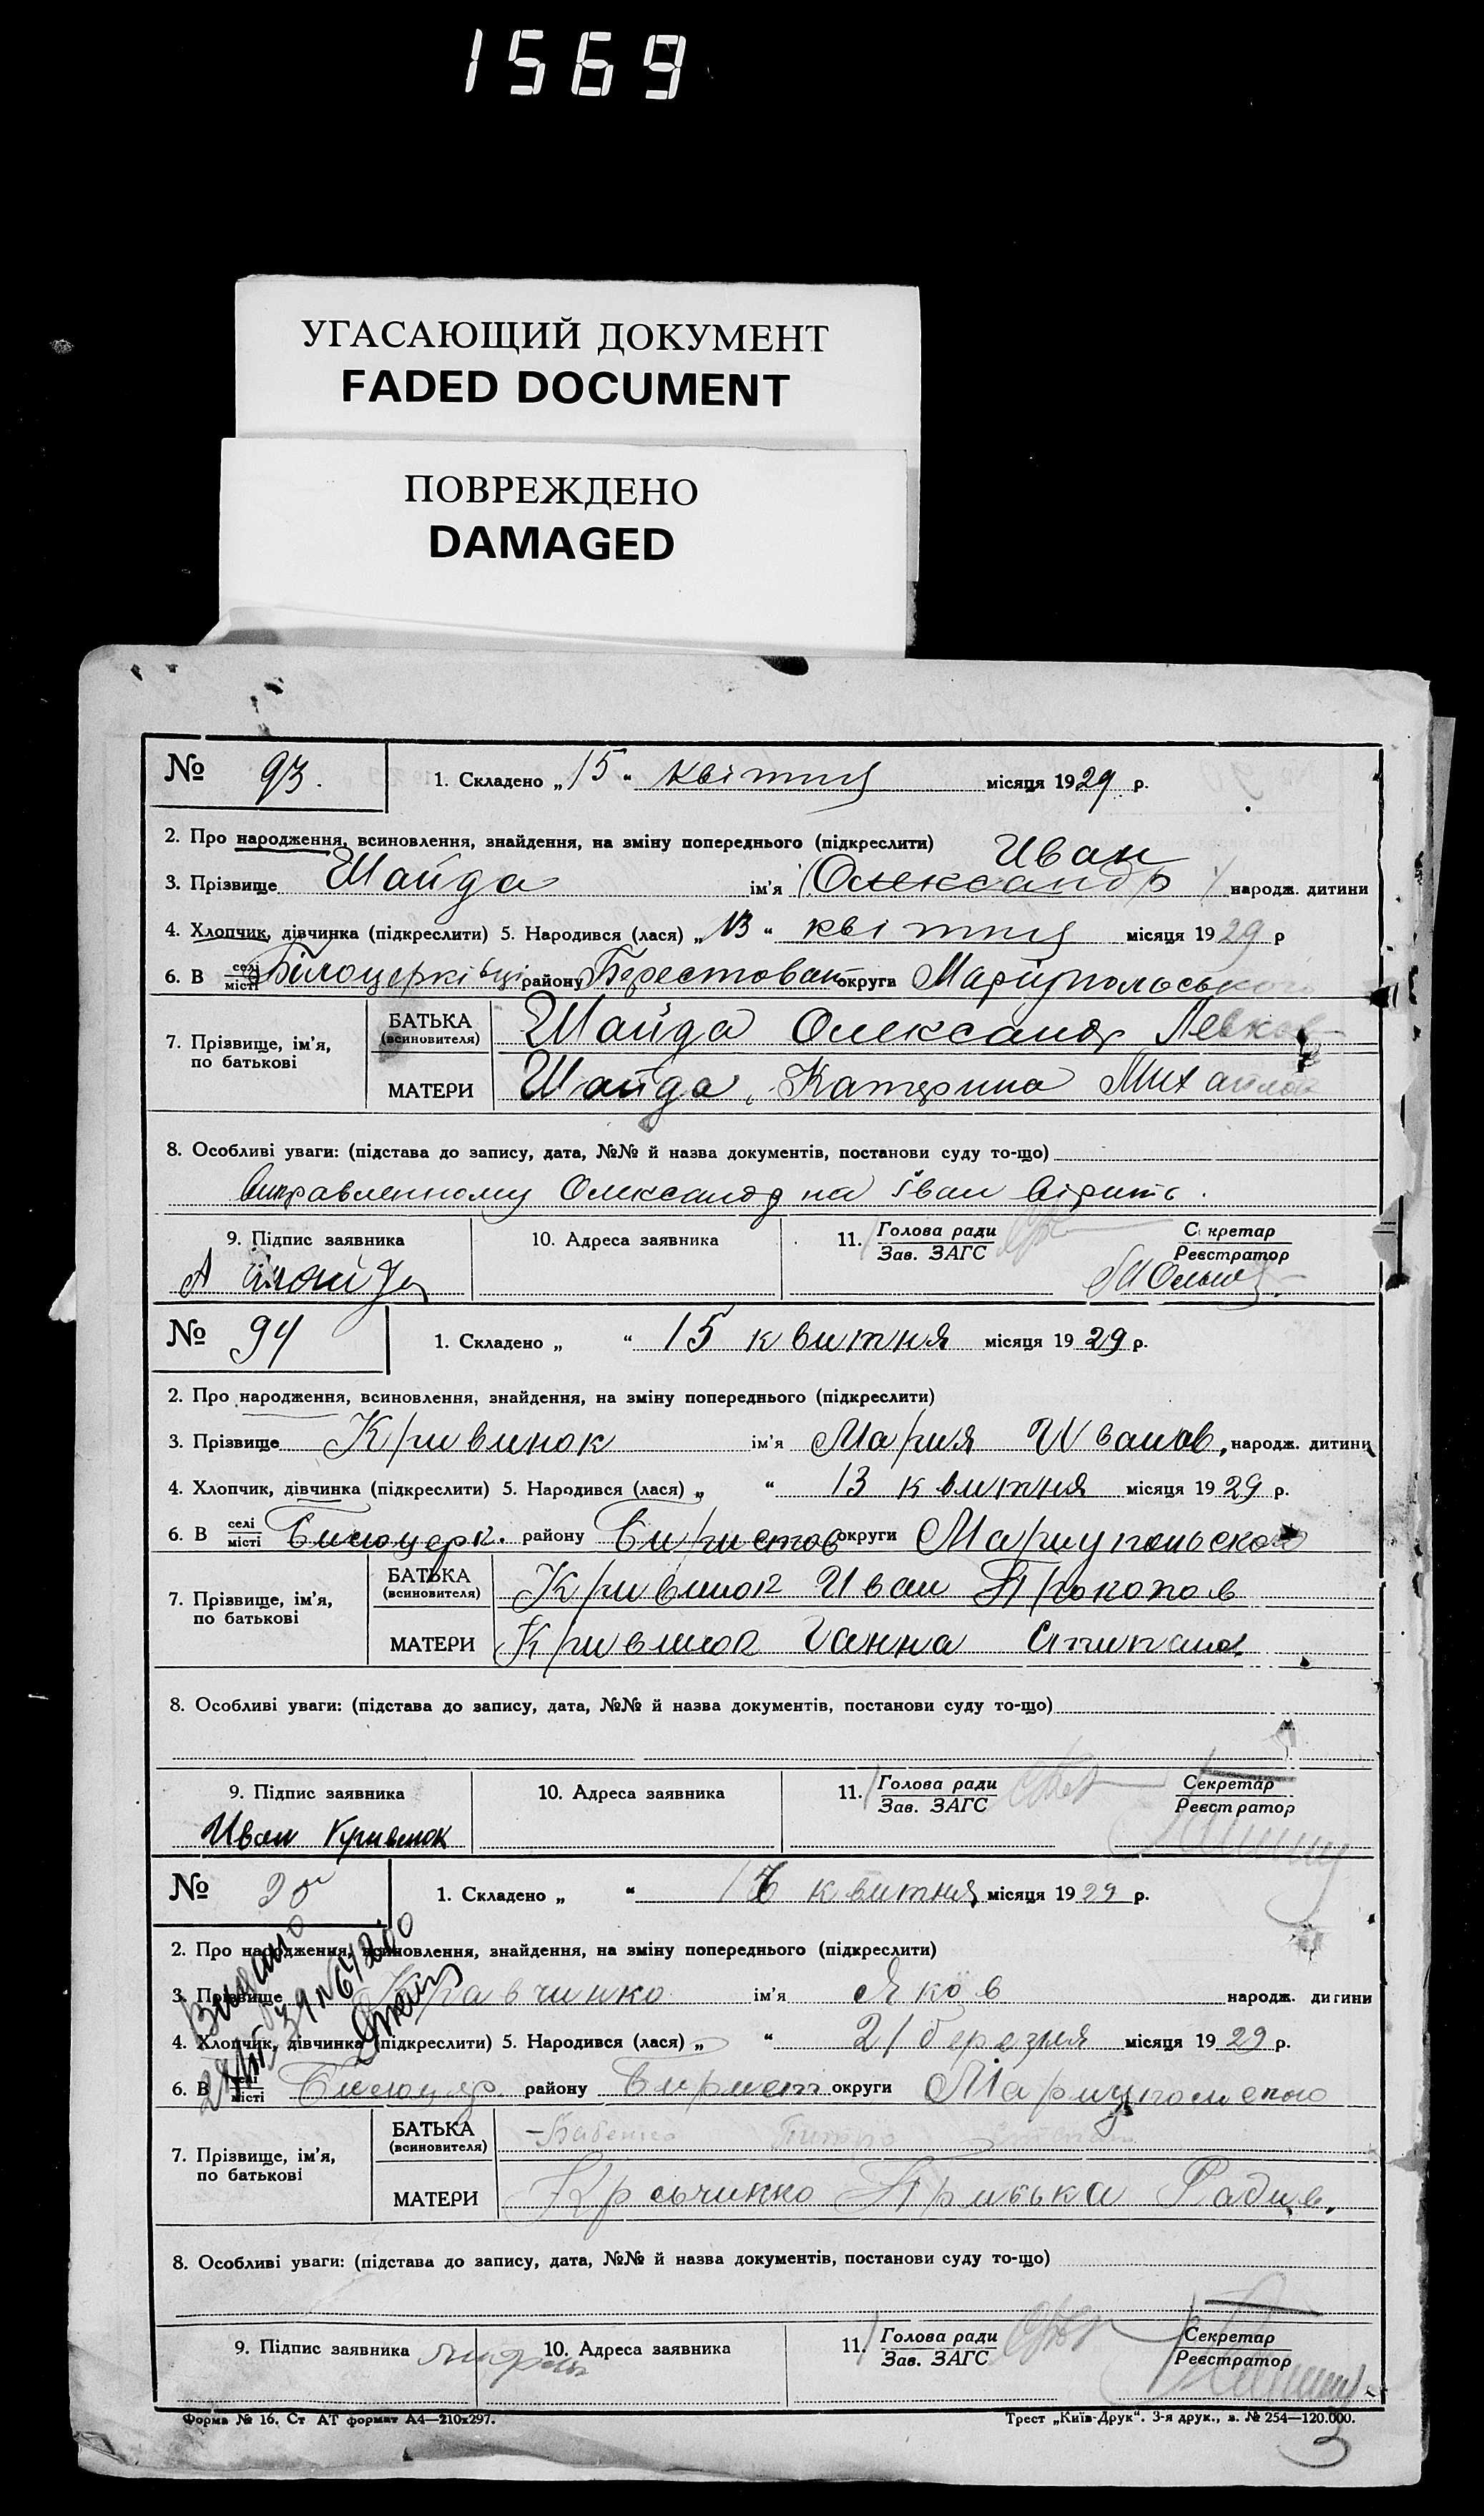 1569
УГАСАЮЩИЙ ДОКУМЕНТ
FADED DOCUMENT
ПОВРЕЖДЕНО
DAMAGED
№ 93. 1. Складено „15“ квітня місяця 1929 р.
2. Про народження, всиновлення, знайдення, на зміну попереднього (підкреслити)
Иван
3. Прізвище Шайда ім'я (Олександр) народж. дитини
4. Хлопчик, дівчинка (підкреслити) 5. Народився (лася) „13“ квітня місяця 1929 р
6. В селі місті Білоцерківці району Берестован округи Маріупольського
7. Прізвище, ім'я, по батькові
БАТЬКА (всиновителя) Шайда Олександр Левков
МАТЕРИ Шайда, Катерина Михайлов
8. Особливі уваги: (підстава до запису, дата, №№ й назва документів, постанови суду то-що)
Виправленному Олександр на Іван вірить.
9. Підпис заявника 10. Адреса заявника 11. Голова ради Зав. ЗАГС Секретар Реєстратор
А Шайда
№ 94 1. Складено „ “ 15 квитня місяця 1929 р.
2. Про народження, всиновлення, знайдення, на зміну попереднього (підкреслити)
3. Прізвище Кривинок ім'я Мария Иванов. народж. дитини
4. Хлопчик, дівчинка (підкреслити) 5. Народився (лася) „ “ 13 квитня місяця 1929 р.
6. В селі місті Билоцерк. району Биристов округи Мариупольского
7. Прізвище, ім'я, по батькові
БАТЬКА (всиновителя) Кривинок Иван Прокопов
МАТЕРИ Кривинок Ганна Стипанов.
8. Особливі уваги: (підстава до запису, дата, №№ й назва документів, постанови суду то-що)
9. Підпис заявника 10. Адреса заявника 11. Голова ради Зав. ЗАГС Секретар Реєстратор
Иван Кривинок
№ 1. Складено „ “ квитня місяця 1929 р.
2. Про народження, всиновлення, знайдення, на зміну попереднього (підкреслити)
Видано
3. Прізвище Кравчинко ім'я Яков народж. дитини
4. Хлопчик, дівчинка (підкреслити) 5. Народився (лася) „ “ 21 березня місяця 1929 р.
6. В селі місті Билоцер. району Бирист округи Мариупольского
7. Прізвище, ім'я, по батькові
БАТЬКА (всиновителя)
МАТЕРИ Радив.
8. Особливі уваги: (підстава до запису, дата, №№ й назва документів, постанови суду то-що)
9. Підпис заявника 10. Адреса заявника 11. Голова ради Зав. ЗАГС Секретар Реєстратор
Форма № 16. Ст АТ формат А4—210х297. Трест „Київ-Друк“. 3-я друк., з. № 254—120.000.
3